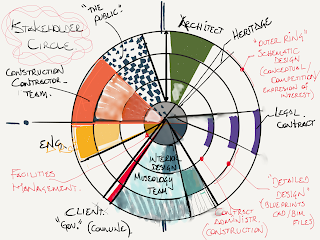 STAKEHOLDER
CIRCLE
"THE
PUBLIC"
ARCHITECT
HERITAGE
"OUTER RING"
SCHEMATIC
DESIGN
(CONCEPTUAL-
COMPETITION/
EXPRESSION OF
INTEREST)
CONSTRUCTION
CONTRACTOR
TEAM.
LEGAL
CONTRACT
ENG
INTERIOR
DESIGN
MUSEOLOGY
TEAM
FACILITIES
MANAGEMENT.
"DETAILED
DESIGN"
(BLUEPRINTS
CAD/BIM
FILES)
CLIENT
"GOV." (COMMUNE).
CONTRACT
ADMINISTR.
(CONSTRUCTION)